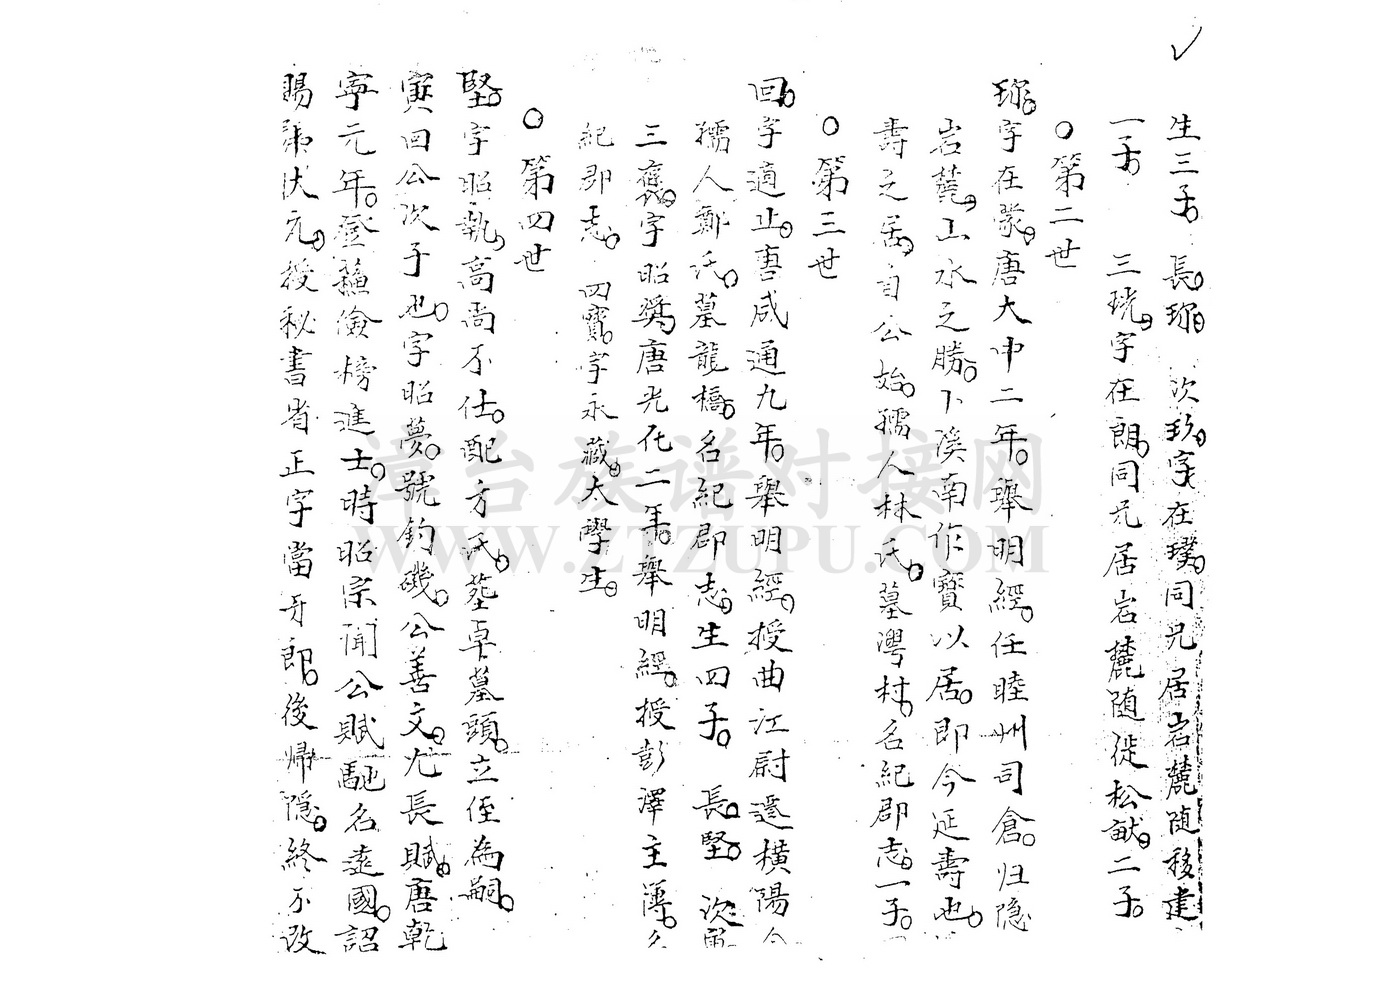 生三子。長琭。 次玖。字在璞。同兄居岩麓随移建
一子。 三珖。字在朗。同兄居岩麓随徙松猷。二子。
○第二世
琭。字在蒙。唐大中二年。舉明經。任睦州司倉。归隐
岩麓。山水之勝。卜溪南作寶以居。即今延壽也。
壽之居。自公始。孺人林氏。墓灣村。名紀郡志。一子。
○第三世
回。字適止。唐咸通九年。舉明經。授曲江尉遷横陽令
孺人鄭氏。墓龍橋。名紀郡志。生四子。 長堅。 次寅
三舊。字昭奬。唐光化二年。舉明經。授彭澤主薄。名
紀郡志。 四寶。字永藏。太學生。
○第四世
堅。字昭執。高尚不仕。配方氏。塟卓墓頭。立侄為嗣。
寅回公次子也。字昭夢。號釣磯。公善文。尤長賦。唐乾
寧元年。登蘇儉榜進士。時昭宗聞公賦馳名遠國。詔
賜第状元。授秘書省正字當弃郎。後帰隐。終不改
漳台族谱对接网
WWW.ZTZUPU.COM